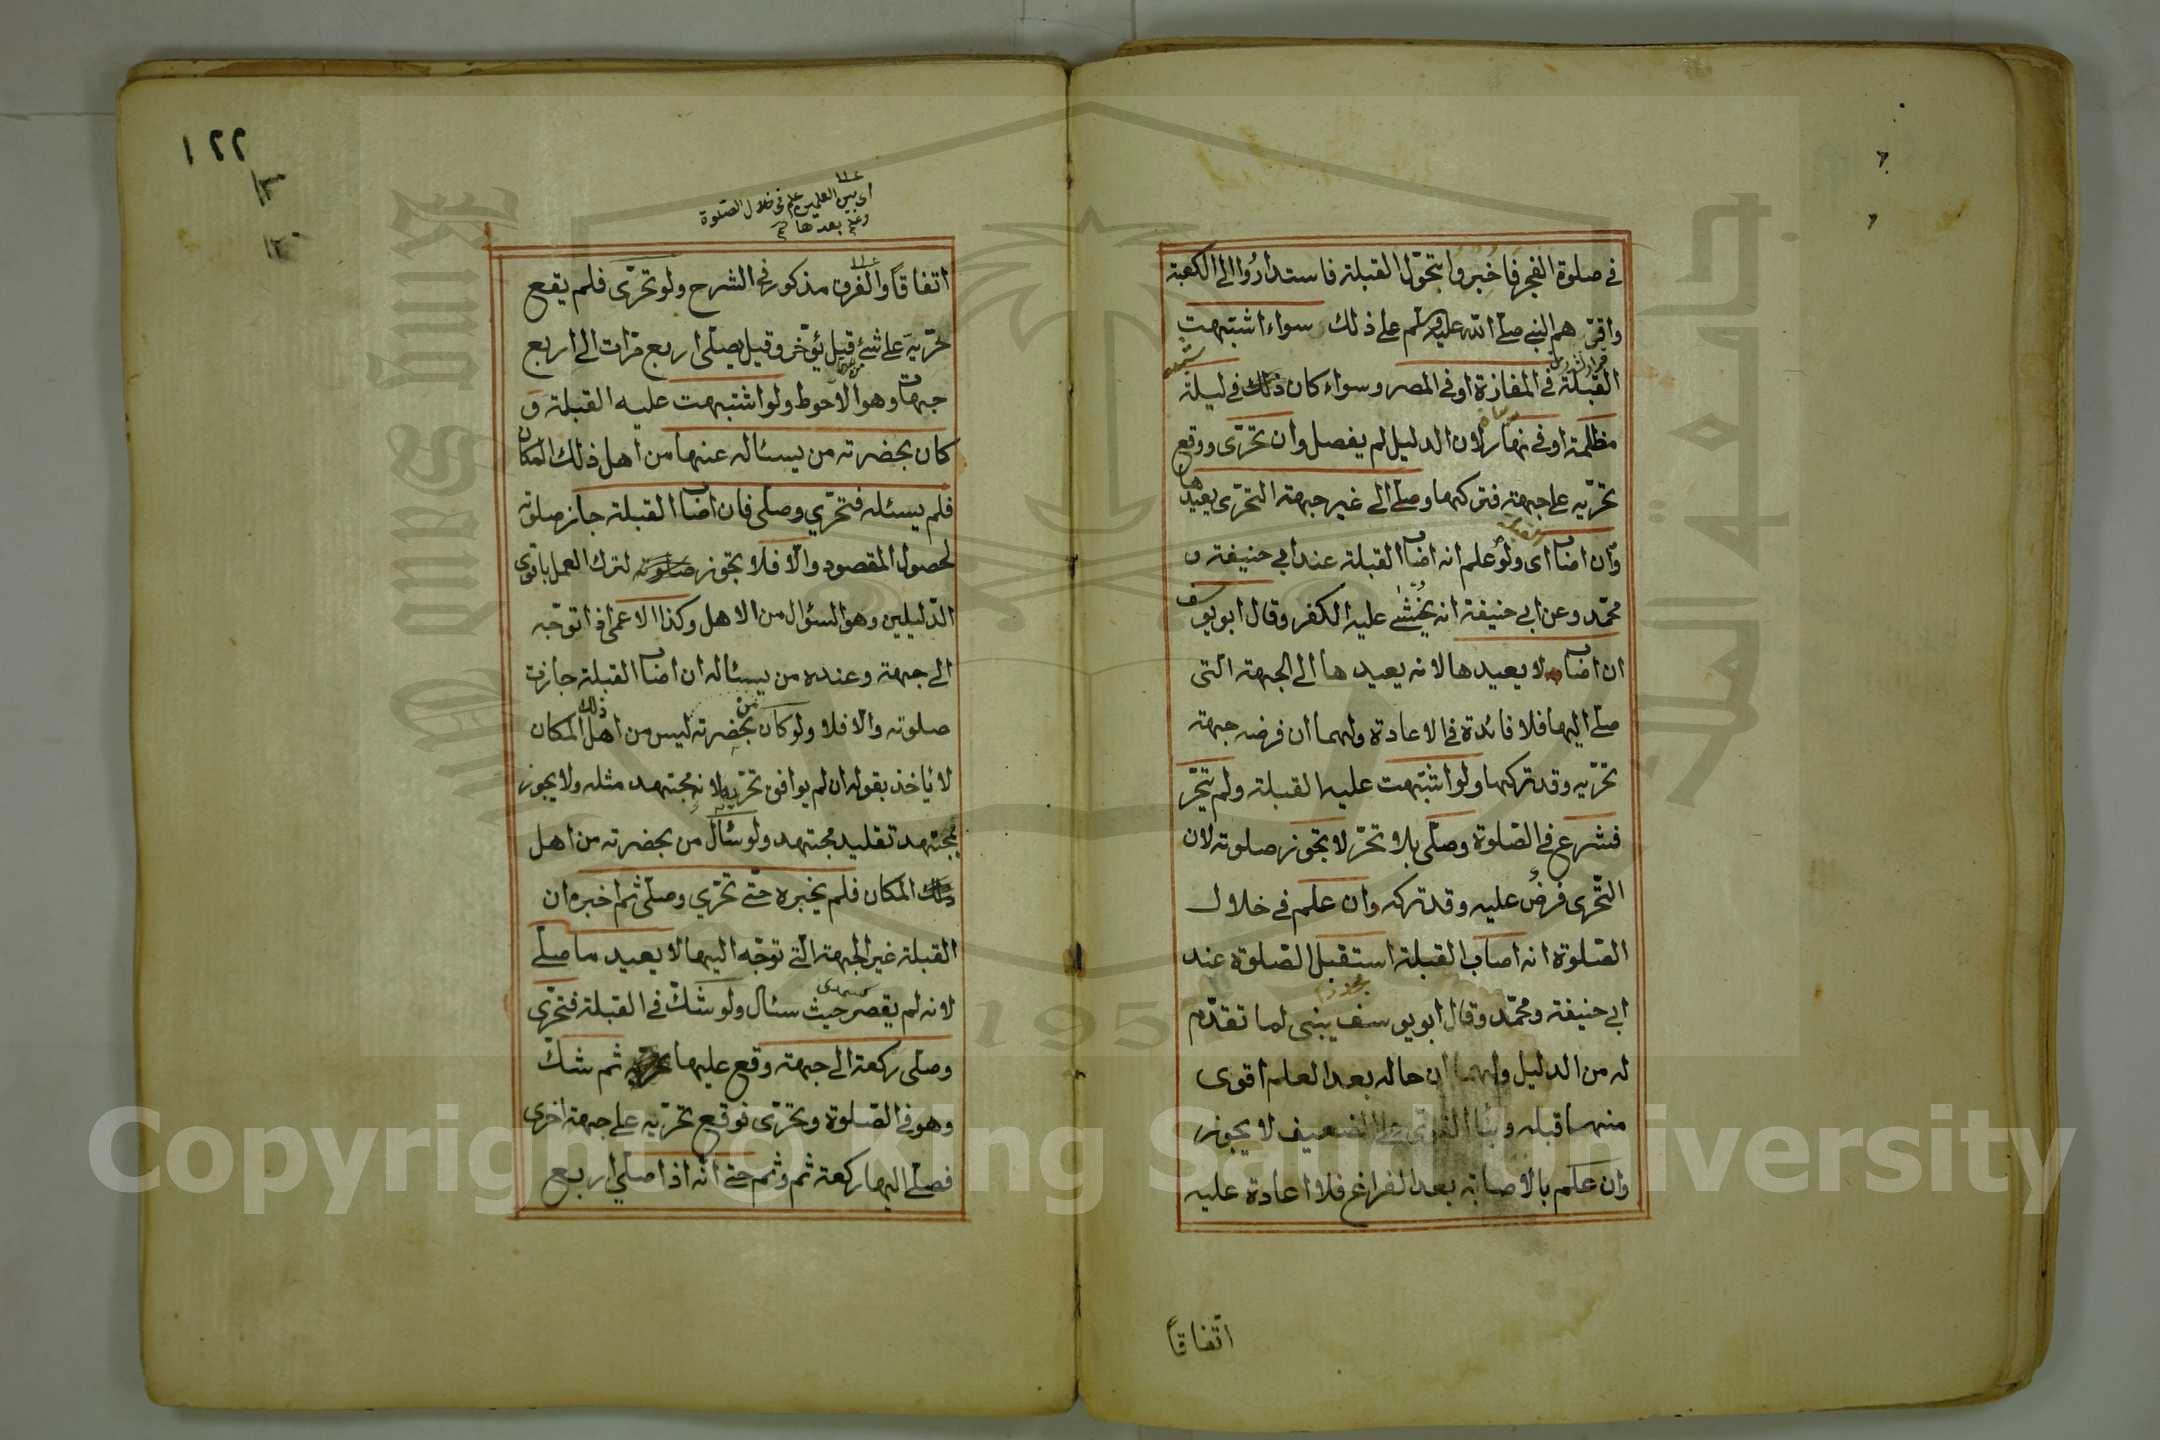 في صلوة الفجر فاخبروا بتحوّل القبلة فاستداروا الى الكعبة
واقرّهم النبي صلى الله عليه وسلم على ذلك سواء اشتبهت
القبلة في المفازة او في المصر وسواء كان ذلك في ليلة
مظلمة او في نهار لان الدليل لم يفصل وان تحرّى ووقع
تحرّيه على جهة فتركها وصلى الى غير جهة التحرّى يعيدها
وان اصاب اى ولو علم انه اصاب القبلة عند ابي حنيفة و
محمّد وعن ابي حنيفة انه يخشى عليه الكفر وقال ابو يوسف
ان اصاب لا يعيدها لانه يعيدها الى الجهة التى
صلى اليها فلا فائدة في الاعادة ولهما ان فرضه جهة
تحرّيه وقد تركها ولو اشتبهت عليه القبلة ولم يتحرّ
فشرع في الصّلوة وصلّى بلا تحرّ لا تجوز صلوته لان
التّحرى فرض عليه وقد تركه وان علم في خلال
الصّلوة انه اصاب القبلة استقبل الصّلوة عند
ابي حنيفة ومحمّد وقال ابو يوسف يبنى لما تقدّم
له من الدليل ولهما ان حاله بعد العلم اقوى
منها قبله وبناء القوى على الضعيف لا يجوز
وان علم بالاصابة بعد الفراغ فلا اعادة عليه
اتّفاقاً
١٢٢
اى بين العلمين علم في خلال الصّلوة
وعلم بعدها
اتفاقاً والفرق مذكور في الشرح ولو تحرّى فلم يقع
تحرّيه على شئ قيل يؤخّر وقيل يصلّى اربع مرّات الى اربع
جهات وهو الاحوط ولو اشتبهت عليه القبلة و
كان بحضرته من يسئاله عنها من اهل ذلك المكان
فلم يسئله فتحرّي وصلّى فان اصاب القبلة جاز صلوته
لحصول المقصود والّا فلا تجوز صلوته لترك العمل باقوى
الدّليلين وهو السؤال من الاهل وكذا الاعمى اذا توجّه
الى جهة وعنده من يسئاله ان اصاب القبلة جازت
صلوته والّا فلا ولو كان من بحضرته ليس من اهل ذلك المكان
لا ياخذ بقوله ان لم يوافق تحرّيه لانه مجتهد مثله ولا يجوز
لمجتهد تقليد مجتهد ولو سئال من بحضرته من اهل
ذلك المكان فلم يخبره حتّى تحرّي وصلّى ثم اخبره ان
القبلة غير الجهة الّتي توجّه اليها لا يعيد ما صلى
لانه لم يقصر حيث سئال ولو شكّ في القبلة فتحرّى
وصلّى ركعة الى جهة وقع عليها تحرّيه ثم شكّ
وهو في الصّلوة وتحرّى فوقع تحرّيه على جهة اخرى
فصلّى اليها ركعة ثم وثم حتى انّه اذا صلّي اربع
Copyright © King Saud University
1957